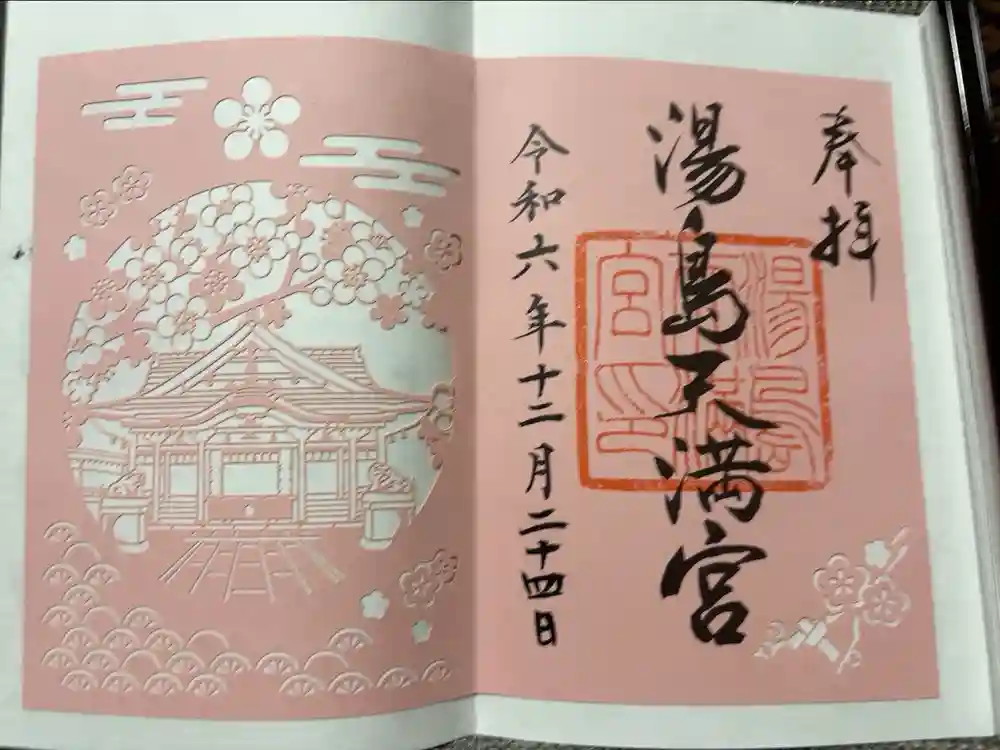 奉拝
湯島天満宮
湯島天満宮印
令和六年十二月二十四日